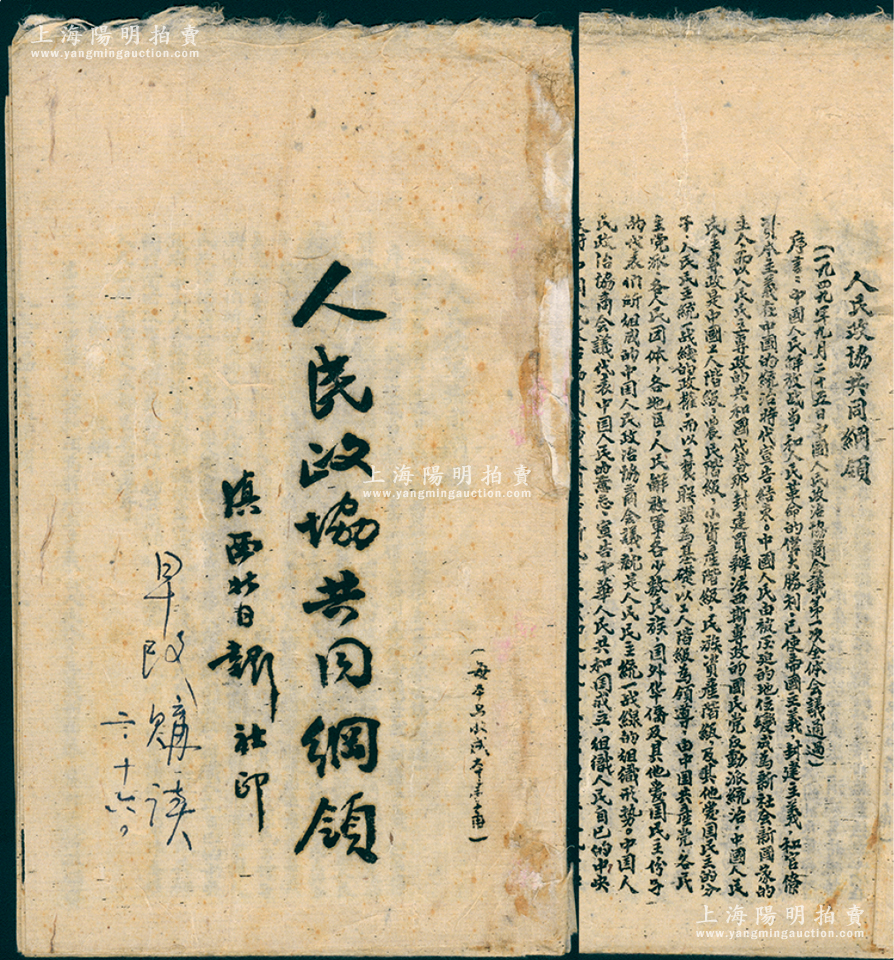 上海陽明拍賣
www.yangmingauction.com
(每本只收成本半甬)
人民政協共同綱領
滇西北日報社印
早政購讀
二、十六。
上海陽明拍賣
www.yangmingauction.com
人民政協共同綱領
(一九四九年九月二十五日中國人民政治協商会議第一次全体会議通過)
序言:中國人民解放战争和人民革命的偉大勝利,已使帝國主義,封建主義,和官僚
資本主義在中國的統治時代宣告結束。中國人民由被压廹的地位變成為新社会新國家的
主人,而以人民民主專政的共和國代替那封建買辦法西斯專政的國民党反動派統治,中國人民
民主專政是中國工人階級、農民階級、小資産階級、民族資産階級、及其他爱国民主的分
子,人民民主統一战線的政權,而以工農联盟為基礎,以工人階級為領導。由中國共産党,各民
主党派,各人民团体,各地区,人民解放軍各少数民族,国外华僑及其他爱国民主份子
的代表们所组成的中国人民政治協商会議,就是人民民主統一战線的组織形势。中国人
民政治協商会議代表中国人民的意志,宣告中華人民共和国成立,组織人民自己的中央
上海陽明拍賣
www.yangmingauction.com